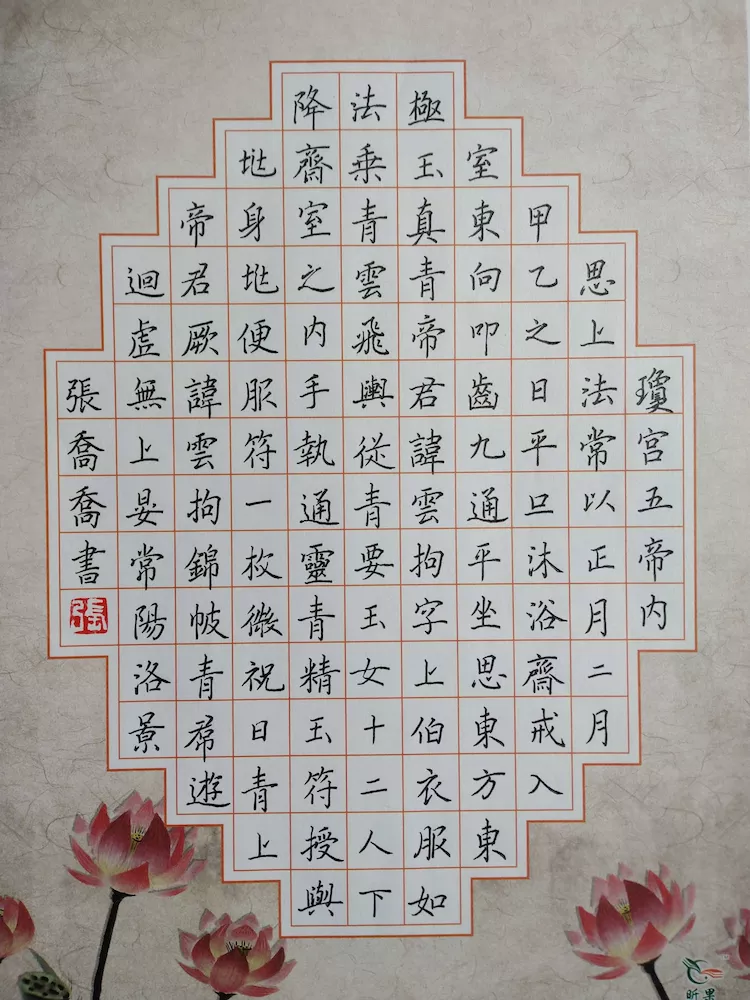 瓊宮五帝內
思上法常以正月二月
甲乙之日平旦沐浴齋戒入
室東向叩齒九通平坐思東方東
極玉真青帝君諱雲拘字上伯衣服如
法乗青雲飛輿從青要玉女十二人下
降齋室之內手執通靈青精玉符授與
身便服符一枚微祝曰青上
帝君厥諱雲拘錦帔青帬遊
迴虛無上晏常陽洛景
張喬喬書
張
昕果